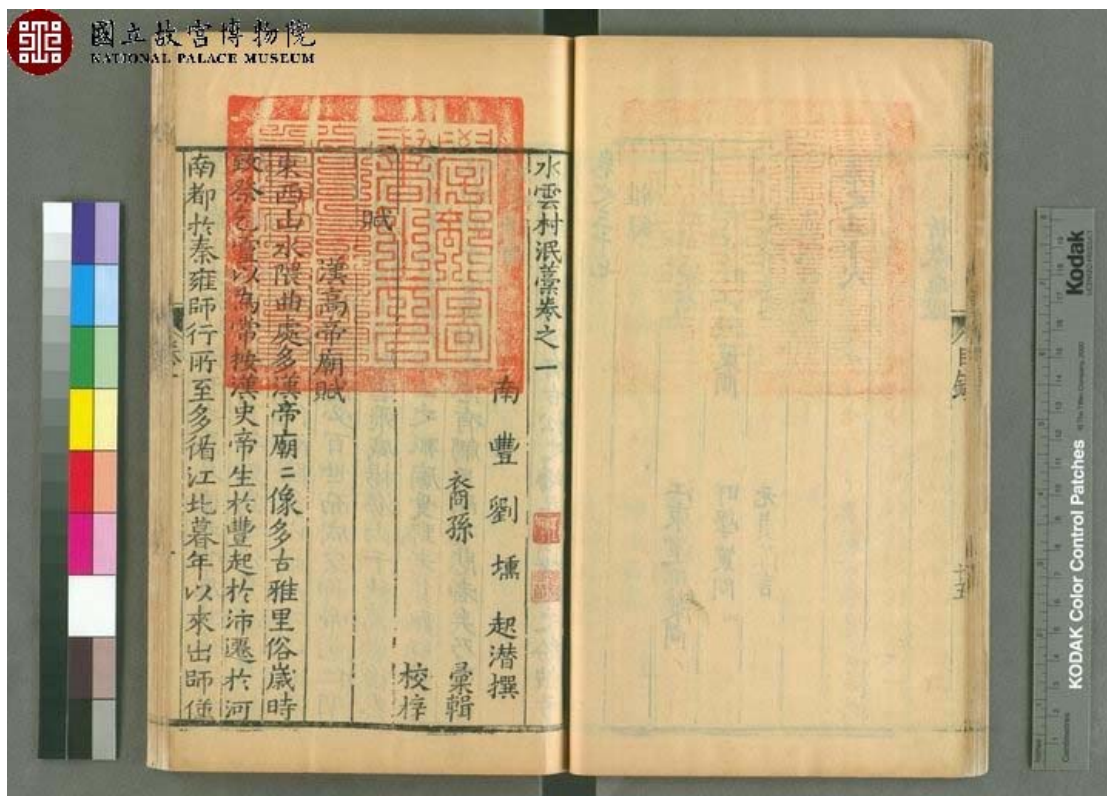 國立故宮博物院
NATIONAL PALACE MUSEUM
水雲村泯藁卷之一
南豐劉壎起潛撰
裔孫 彙輯
校梓
賦
漢高帝廟賦
東西山水隈曲處多漢帝廟二像多古雅里俗歲時
致祭乞靈以為常按漢史帝生於豐起於沛遷於河
南都於秦雍師行所至多循江北暮年以來出師
目錄
十五
Kodak
KODAK Color Control Patches